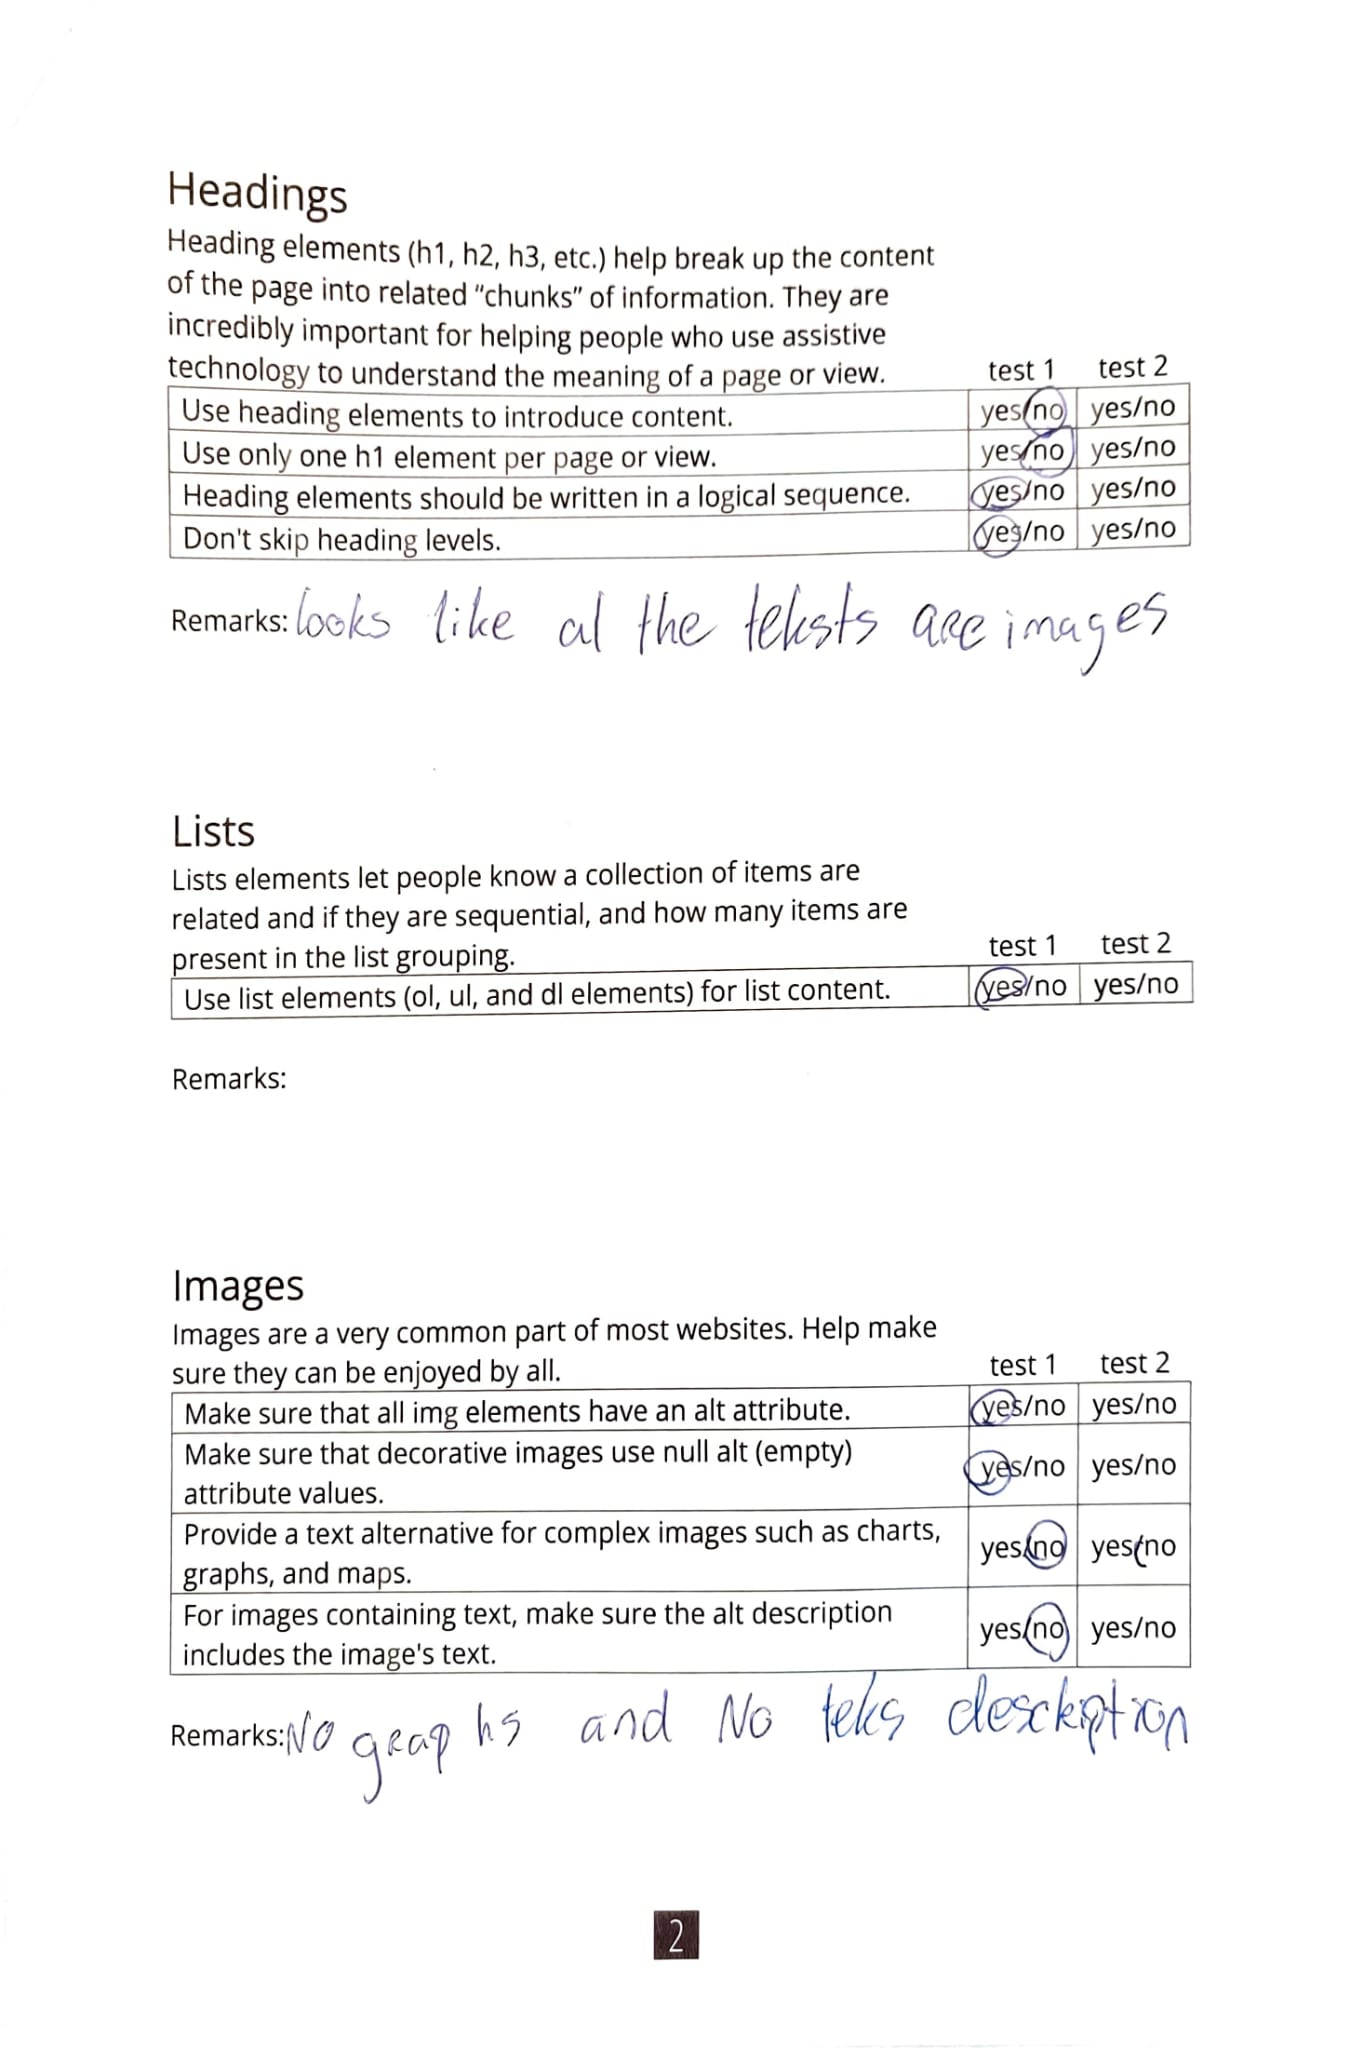 Headings
Heading elements (h1, h2, h3, etc.) help break up the content
of the page into related “chunks” of information. They are
incredibly important for helping people who use assistive
technology to understand the meaning of a page or view. test 1 test 2
Use heading elements to introduce content. yes/no yes/no
Use only one h1 element per page or view. yes/no yes/no
Heading elements should be written in a logical sequence. yes/no yes/no
Don't skip heading levels. yes/no yes/no
Remarks: looks like al the teksts are images
Lists
Lists elements let people know a collection of items are
related and if they are sequential, and how many items are
present in the list grouping. test 1 test 2
Use list elements (ol, ul, and dl elements) for list content. yes/no yes/no
Remarks:
Images
Images are a very common part of most websites. Help make
sure they can be enjoyed by all. test 1 test 2
Make sure that all img elements have an alt attribute. yes/no yes/no
Make sure that decorative images use null alt (empty)
attribute values. yes/no yes/no
Provide a text alternative for complex images such as charts,
graphs, and maps. yes/no yes/no
For images containing text, make sure the alt description
includes the image's text. yes/no yes/no
Remarks: No graphs and No teks desckiption
2